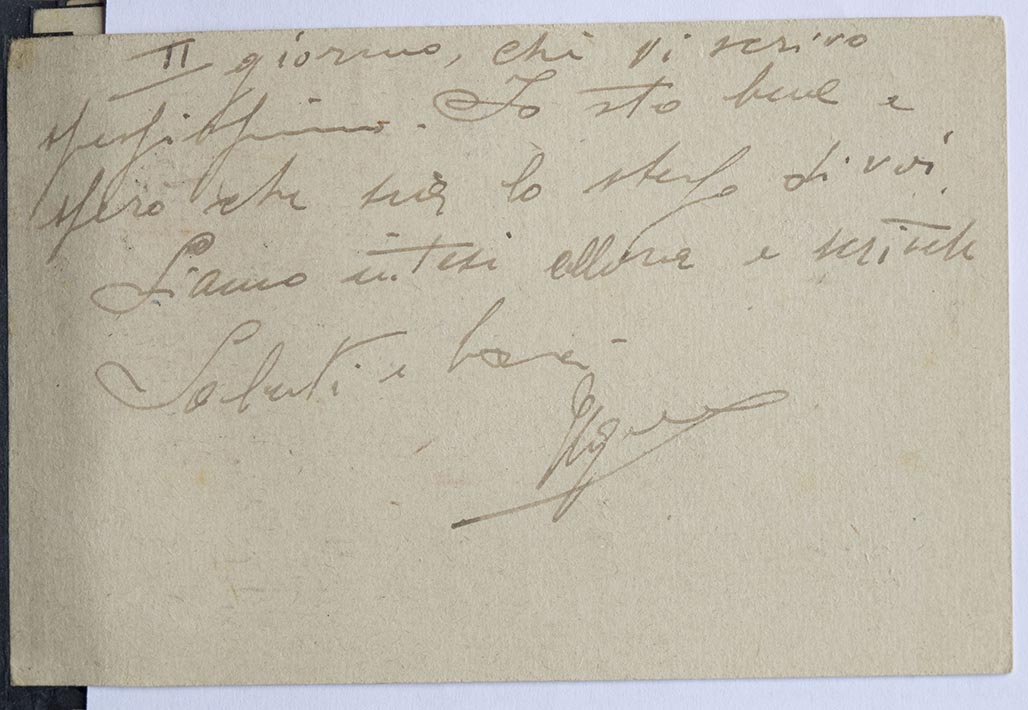 II giorno, che vi scrivo
spessissimo. Io sto bene e
spero che sia lo stesso di voi.
Siamo intesi allora e scrivete
Saluti e baci